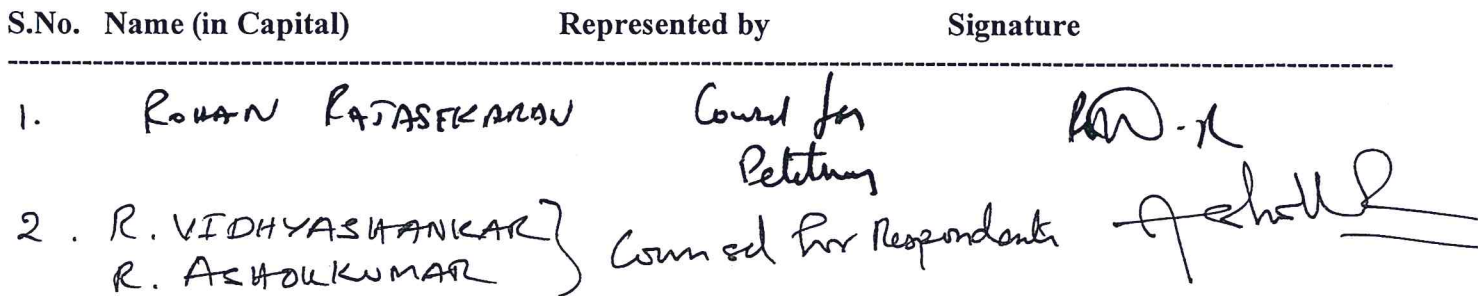 S.No. Name (in Capital) Represented by Signature
1. ROHAN RAJASEKARAN Counsel for
Petitioner
2. R. VIDHYASHANKAR } Counsel for Respondents
R. ASHOKKUMAR